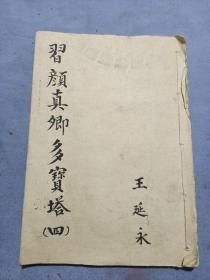 習顏真卿多寶塔(四)
王延永